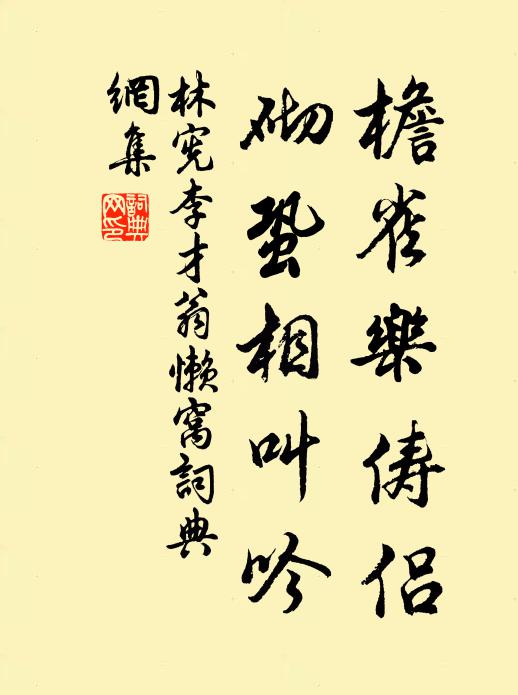 檐雀樂俦侶
砌蛩相叫吟
林宪李才翁懒窝詞典
網集
詞典
网印